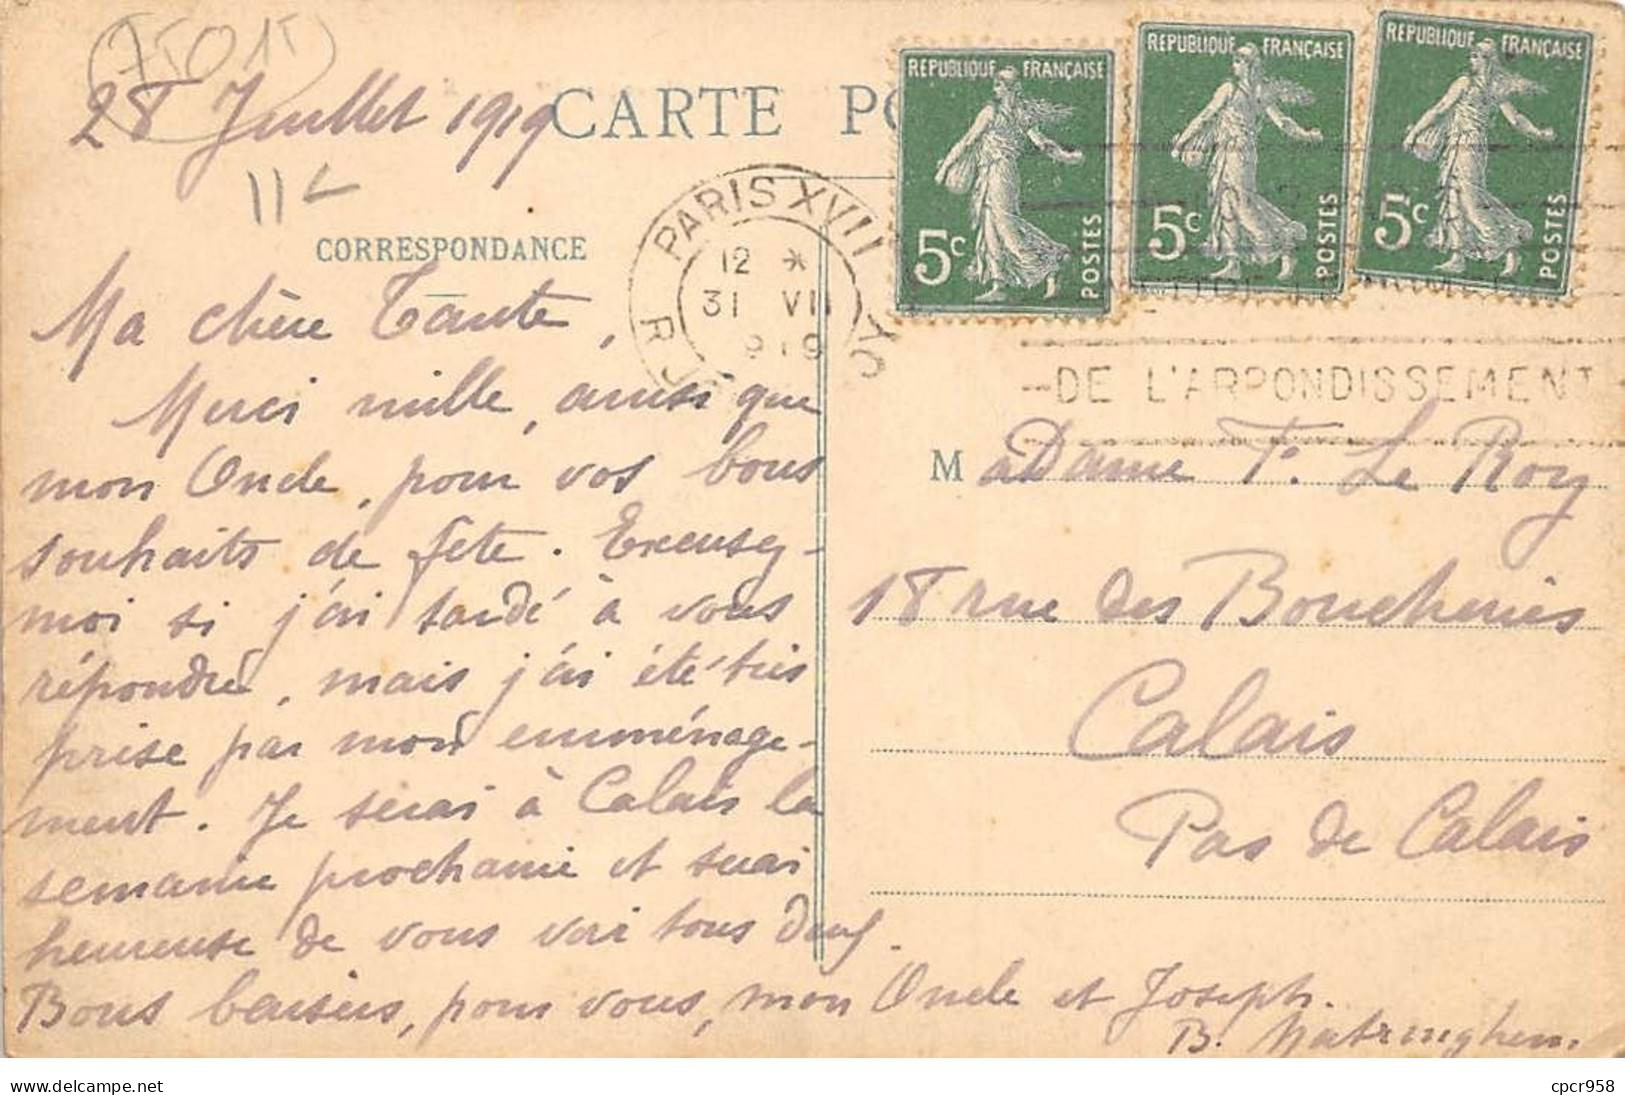 75015
28 Juillet 1919
CARTE PO
RÉPUBLIQUE FRANÇAISE
5c POSTES
RÉPUBLIQUE FRANÇAISE
5c POSTES
RÉPUBLIQUE FRANÇAISE
5c POSTES
PARIS XVII
12 *
31 VII
919
DE L'ARRONDISSEMENT
CORRESPONDANCE
Ma chère Tante,
Merci mille, ainsi que
mon Oncle, pour vos bons
souhaits de fête. Excusez-
moi si j'ai tardé à vous
répondre, mais j'ai été très
prise par mon emménage-
ment. Je serai à Calais la
semaine prochaine et serai
heureuse de vous voir tous deux.
Bons baisers, pour vous, mon Oncle et Joseph.
B. Matringhem.
Madame F. Le Roy
18 rue des Boucheries
Calais
Pas de Calais
cpcr958